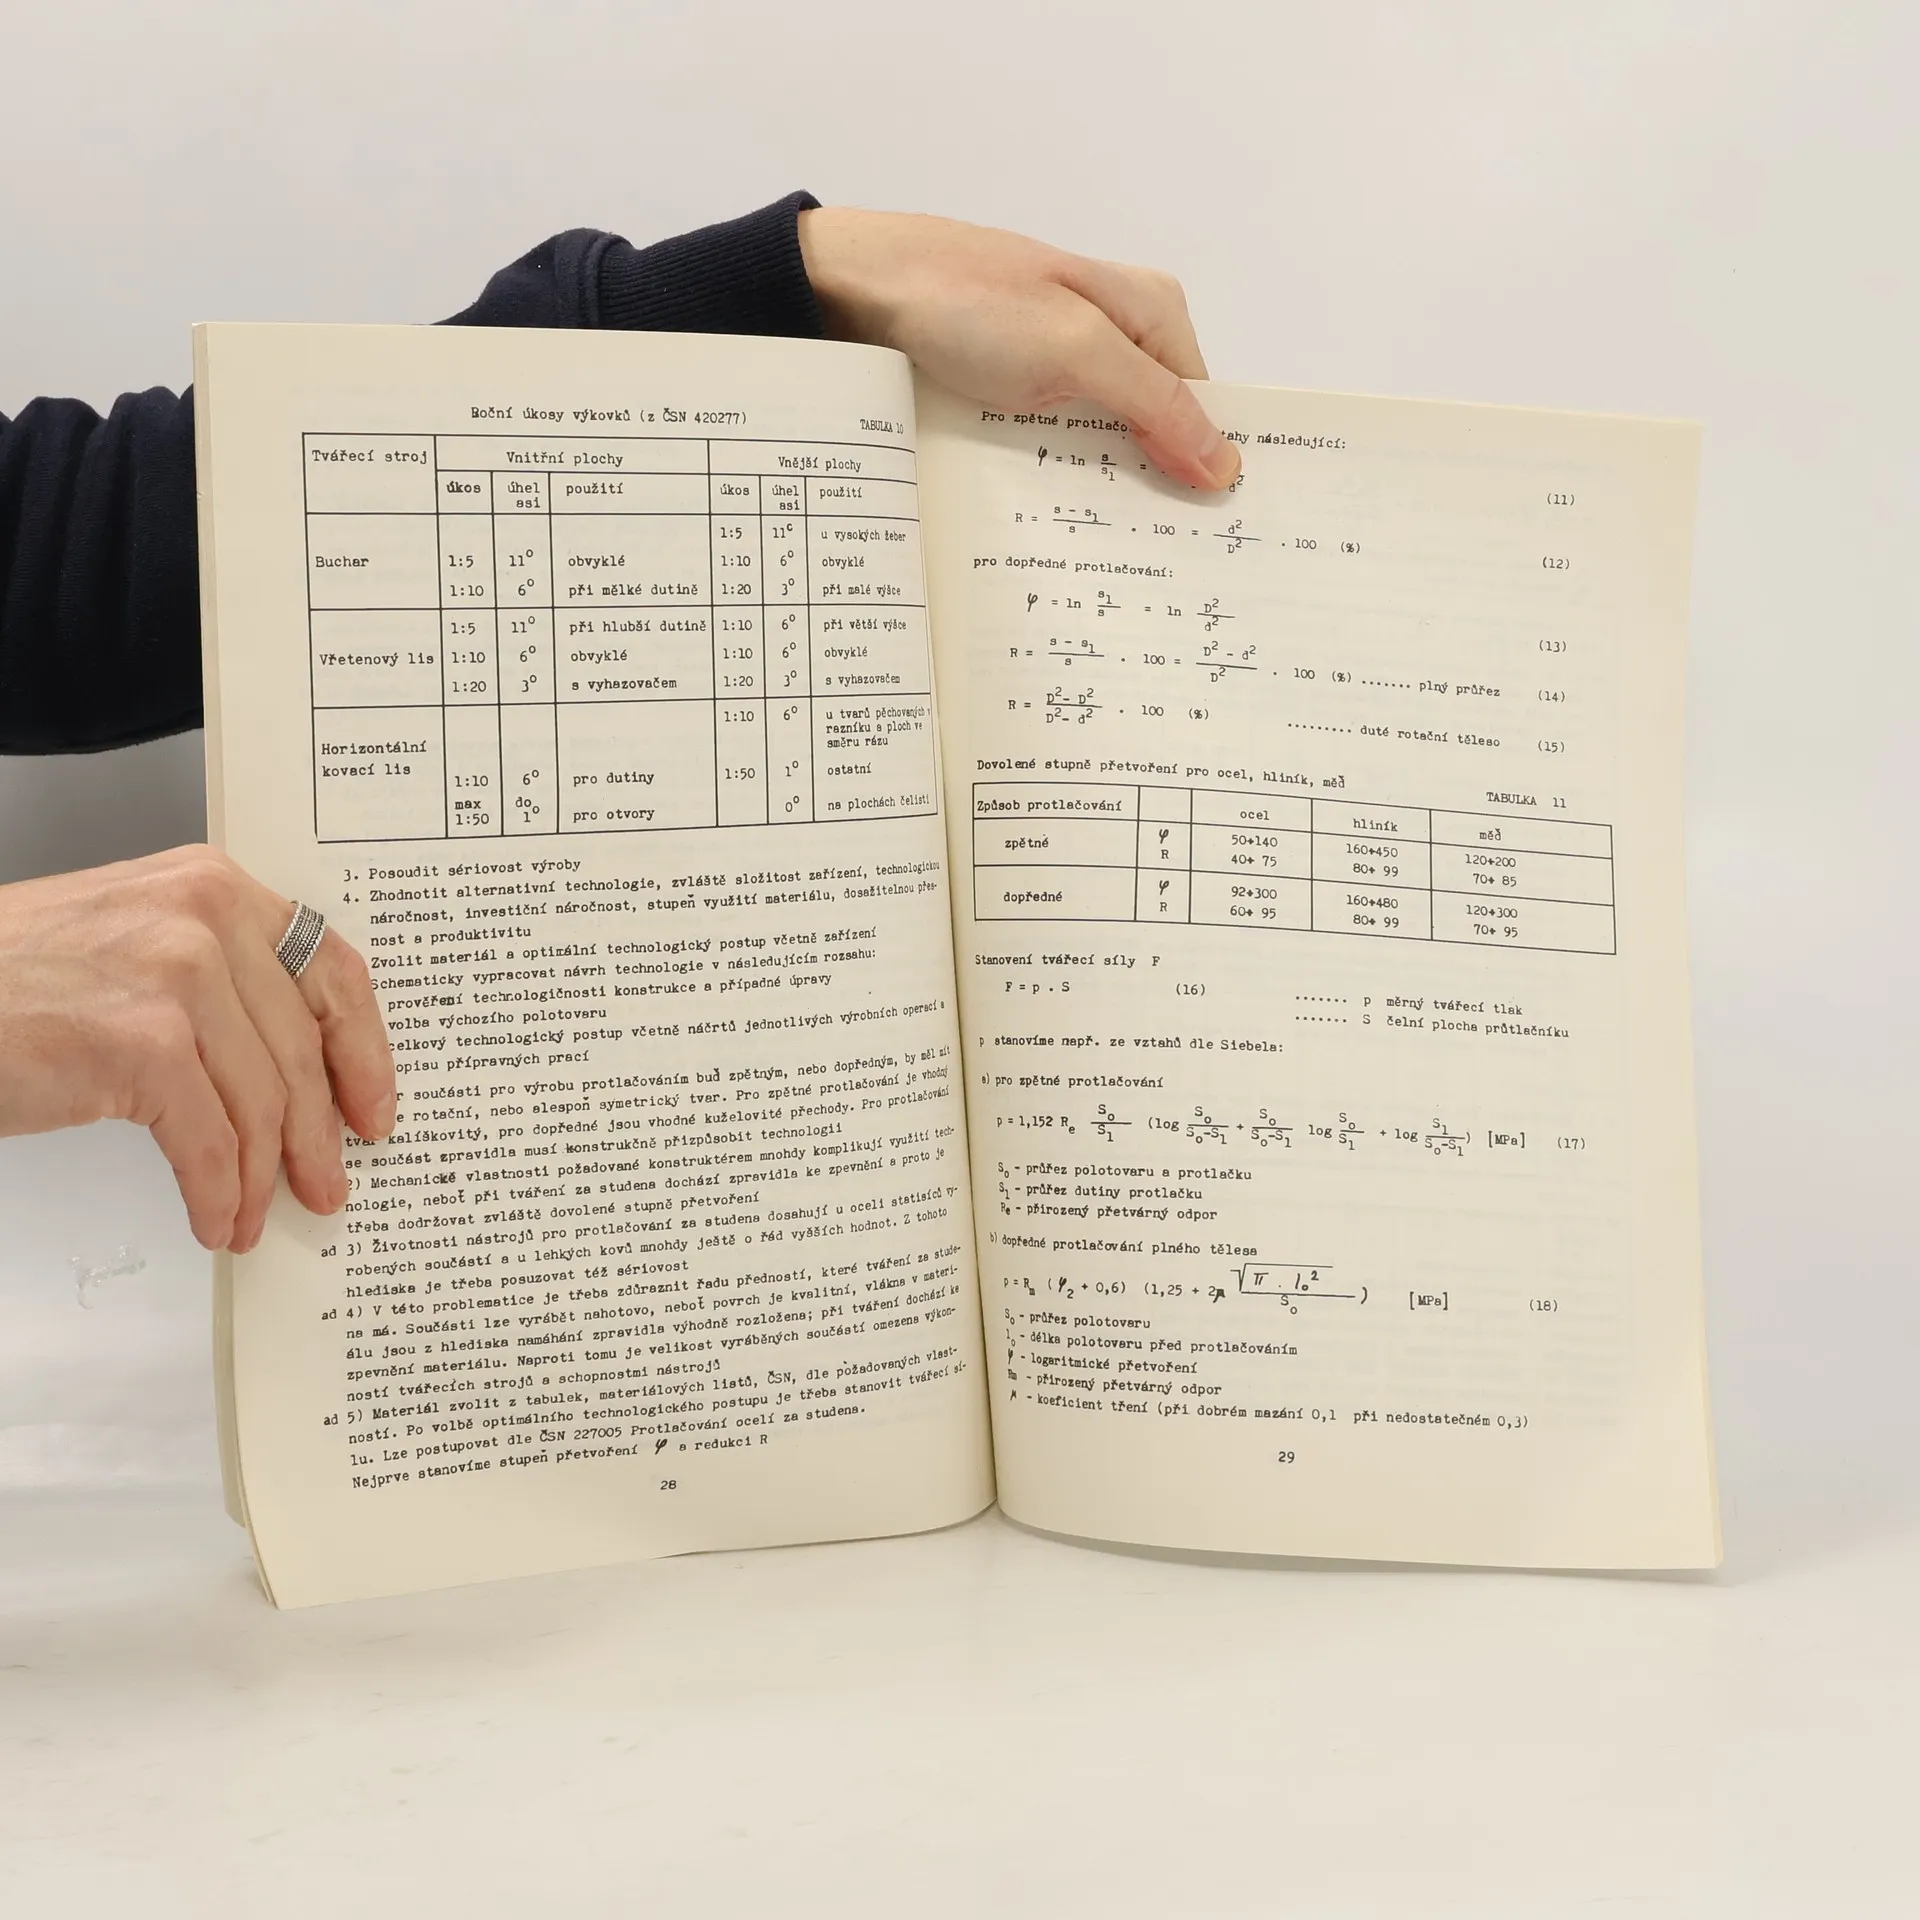 Boční úkosy výkovků (z ČSN 420277)
TABULKA 10
Tvářecí stroj Vnitřní plochy Vnější plochy
úkos úhel asi použití úkos úhel asi použití
1:5 11° u vysokých žeber
Buchar 1:5 11° obvyklé 1:10 6° obvyklé
1:10 6° při mělké dutině 1:20 3° při malé výšce
1:5 11° při hlubší dutině 1:10 6° při větší výšce
Vřetenový lis 1:10 6° obvyklé 1:10 6° obvyklé
1:20 3° s vyhazovačem 1:20 3° s vyhazovačem
1:10 6° u tvarů pěchovaných v
razníku a ploch ve
směru rázu
Horizontální
kovací lis 1:10 6° pro dutiny 1:50 1° ostatní
max do
1:50 1° pro otvory 0° na plochách čelistí
3. Posoudit sériovost výroby
4. Zhodnotit alternativní technologie, zvláště složitost zařízení, technologickou
náročnost, investiční náročnost, stupeň využití materiálu, dosažitelnou přes-
nost a produktivitu
Zvolit materiál a optimální technologický postup včetně zařízení
Schematicky vypracovat návrh technologie v následujícím rozsahu:
prověření technologičnosti konstrukce a případné úpravy
volba výchozího polotovaru
celkový technologický postup včetně náčrtů jednotlivých výrobních operací a
opisu přípravných prací
součásti pro výrobu protlačováním buď zpětným, nebo dopředným, by měl mít
rotační, nebo alespoň symetrický tvar. Pro zpětné protlačování je vhodný
tvar kalíškovitý, pro dopředné jsou vhodné kuželovité přechody. Pro protlačování
se součást zpravidla musí konstrukčně přizpůsobit technologii
2) Mechanické vlastnosti požadované konstruktérem mnohdy komplikují využití tech-
nologie, neboť při tváření za studena dochází zpravidla ke zpevnění a proto je
třeba dodržovat zvláště dovolené stupně přetvoření
ad 3) Životnosti nástrojů pro protlačování za studena dosahují u oceli statisíců vy-
robených součástí a u lehkých kovů mnohdy ještě o řád vyšších hodnot. Z tohoto
hlediska je třeba posuzovat též sériovost
ad 4) V této problematice je třeba zdůraznit řadu předností, které tváření za stude-
na má. Součásti lze vyrábět nahotovo, neboť povrch je kvalitní, vlákna v materi-
álu jsou z hlediska namáhání zpravidla výhodně rozložena; při tváření dochází ke
zpevnění materiálu. Naproti tomu je velikost vyráběných součástí omezena výkon-
ností tvářecích strojů a schopnostmi nástrojů
ad 5) Materiál zvolit z tabulek, materiálových listů, ČSN, dle požadovaných vlast-
ností. Po volbě optimálního technologického postupu je třeba stanovit tvářecí sí-
lu. Lze postupovat dle ČSN 227005 Protlačování ocelí za studena.
Nejprve stanovíme stupeň přetvoření φ a redukci R
28
Pro zpětné následující:
φ = ln s/s₁ = (11)
R = (s - s₁)/s . 100 = d²/D² . 100 (%) (12)
pro dopředné protlačování:
φ = ln s₁/s = ln D²/d² (13)
R = (s - s₁)/s . 100 = (D² - d²)/D² . 100 (%) ....... plný průřez (14)
R = (D²- D²)/(D²- d²) . 100 (%) ......... duté rotační těleso (15)
Dovolené stupně přetvoření pro ocel, hliník, měď
TABULKA 11
Způsob protlačování ocel hliník měď
zpětné φ 50÷140 160÷450 120÷200
R 40÷ 75 80÷ 99 70÷ 85
dopředné φ 92÷300 160÷480 120÷300
R 60÷ 95 80÷ 99 70÷ 95
Stanovení tvářecí síly F
F = p . S (16) ....... p měrný tvářecí tlak
....... S čelní plocha průtlačníku
p stanovíme např. ze vztahů dle Siebela:
a) pro zpětné protlačování
p = 1,152 Rₑ S₀/S₁ (log S₀/(S₀-S₁) + S₀/(S₀-S₁) log S₀/S₁ + log S₁/(S₀-S₁)) [MPa] (17)
S₀ - průřez polotovaru a protlačku
S₁ - průřez dutiny protlačku
Re - přirozený přetvárný odpor
b) dopředné protlačování plného tělesa
p = Rₘ (φ₂ + 0,6) (1,25 + 2μ √(π . l₀²)/S₀) [MPa] (18)
S₀ - průřez polotovaru
l₀ - délka polotovaru před protlačováním
φ - logaritmické přetvoření
Rm - přirozený přetvárný odpor
μ - koeficient tření (při dobrém mazání 0,1 při nedostatečném 0,3)
29